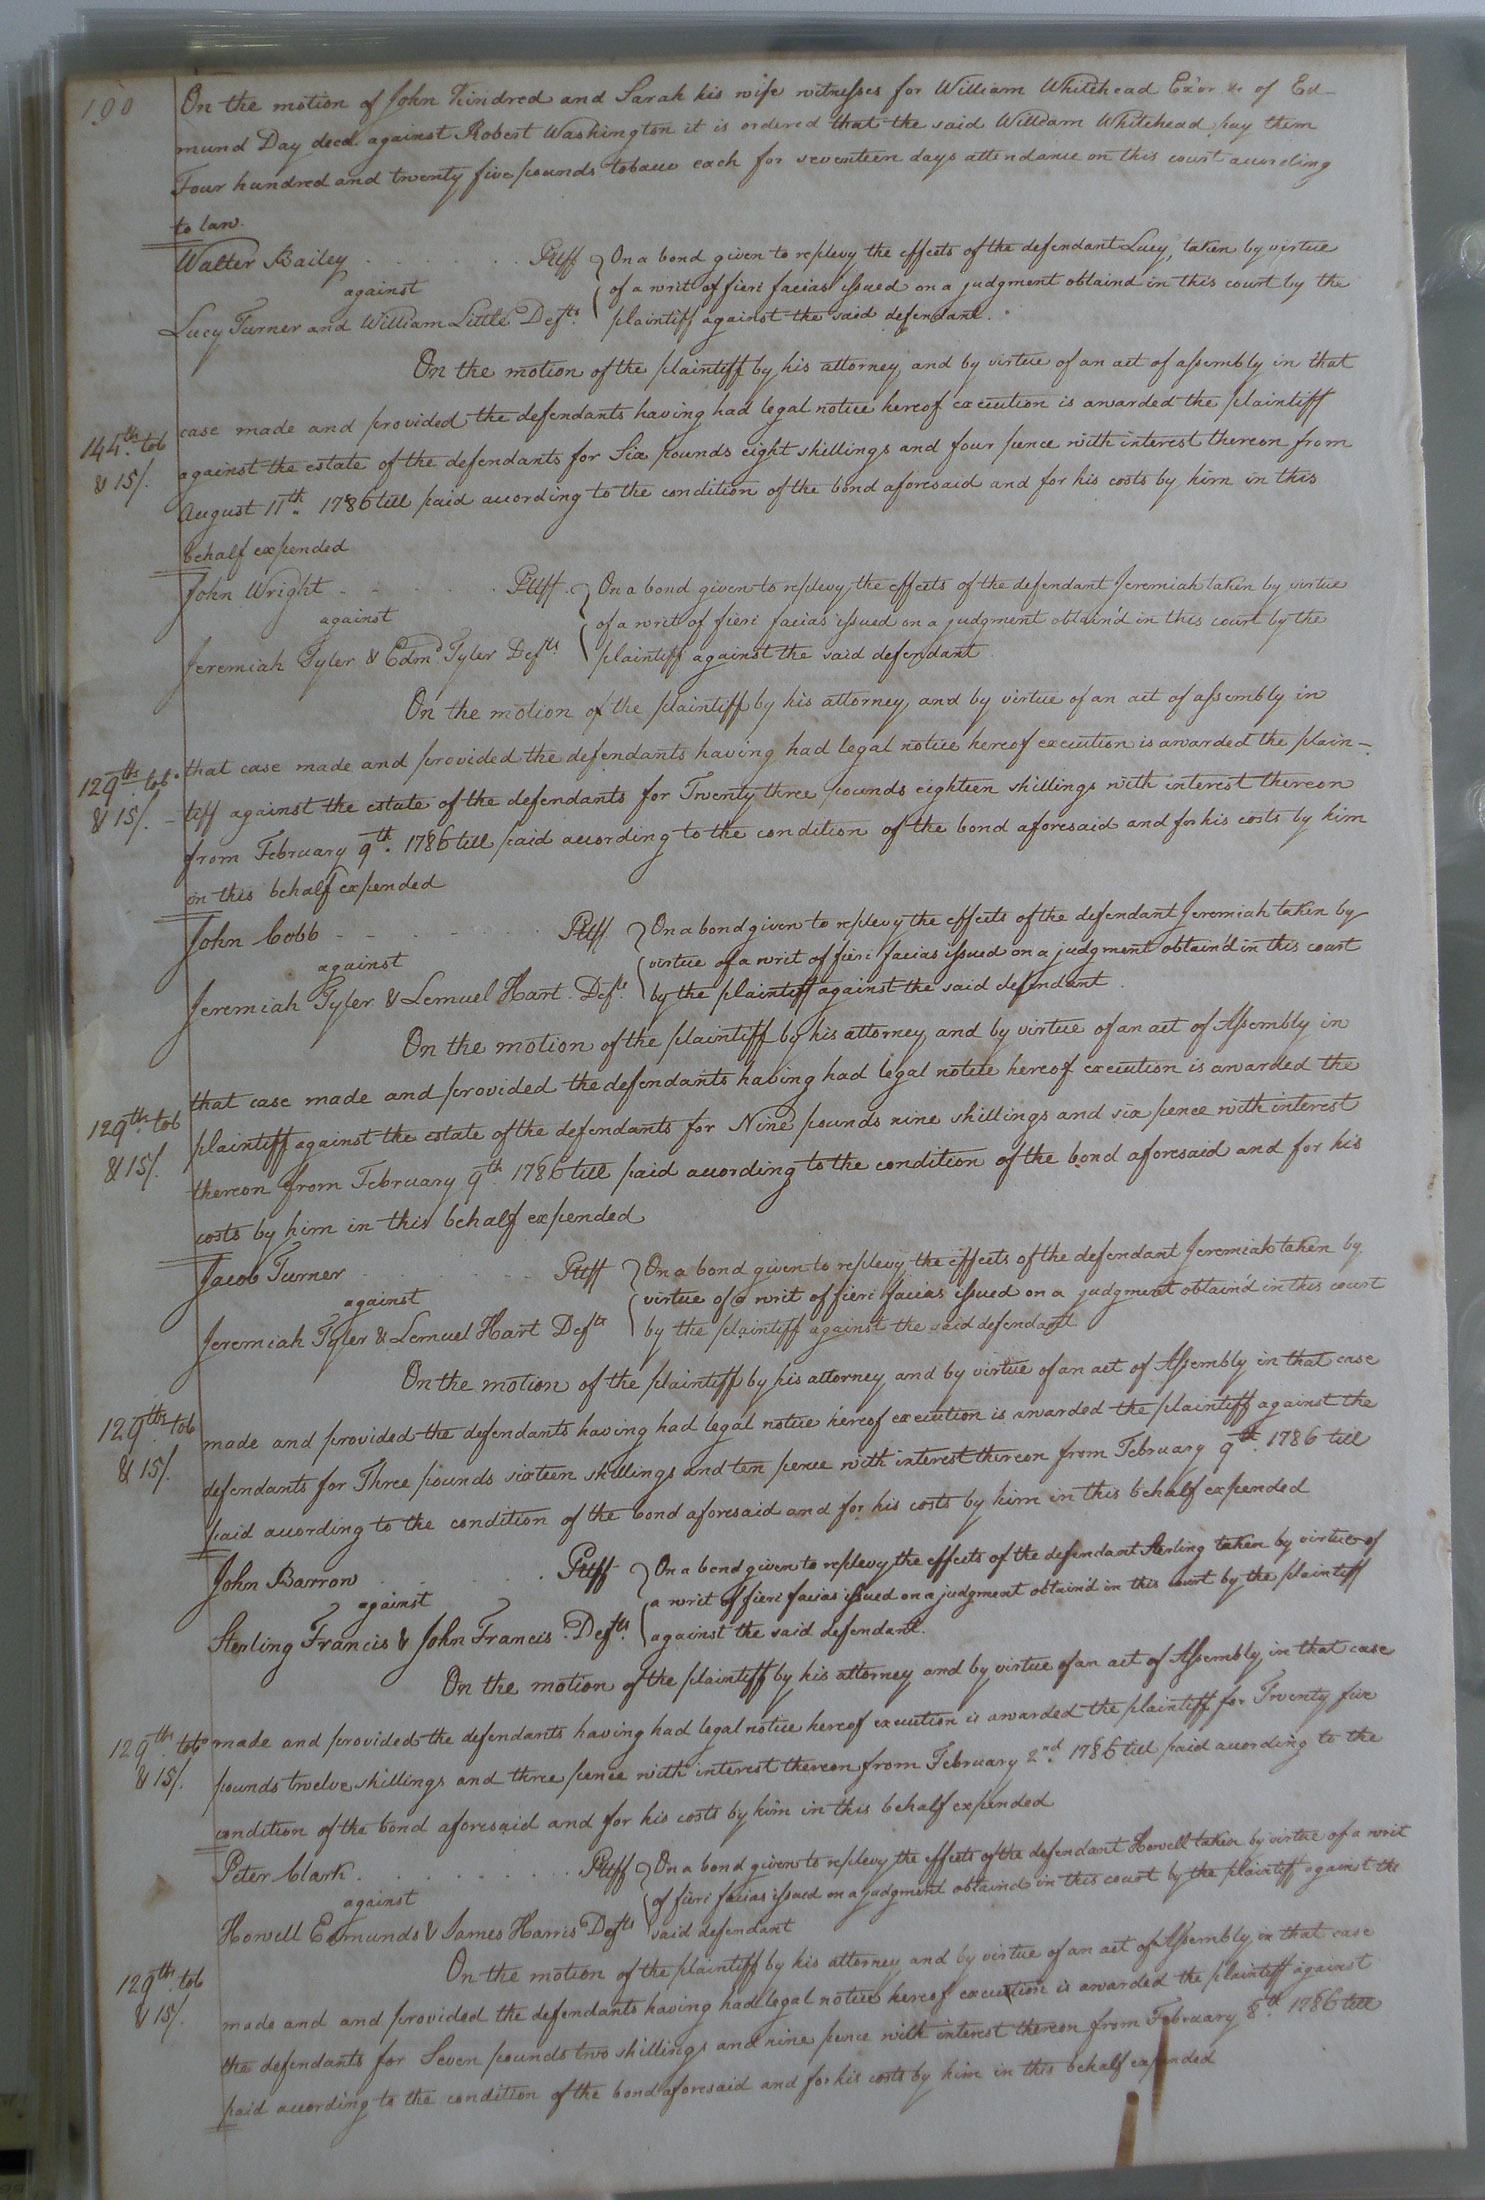 190
On the motion of John Kindred and Sarah his wife witnesses for William Whitehead Exor &c of Ed-
mund Day decd. against Robert Washington it is ordered that the said William Whitehead pay them
Four hundred and twenty five pounds tobacco each for seventeen days attendance on this court according
to law.
Walter Bailey . . . . . . Pltff } On a bond given to replevy the effects of the defendant Lucy, taken by virtue
against of a writ of fieri facias issued on a judgment obtaind in this court by the
Lucy Turner and William Little Defts. plaintiff against the said defendant.
On the motion of the plaintiff by his attorney and by virtue of an act of assembly in that
case made and provided the defendants having had legal notice hereof execution is awarded the plaintiff
144 th. tob
against the estate of the defendants for Six pounds eight shillings and four pence with interest thereon from
& 15/.
August 11th. 1786 till paid according to the condition of the bond aforesaid and for his costs by him in this
behalf expended
John Wright . . . . . . Pltff. } On a bond given to replevy the effects of the defendant Jeremiah taken by virtue
against of a writ of fieri facias issued on a judgment obtain'd in this court by the
Jeremiah Tyler & Edmd Tyler Defts. plaintiff against the said defendant
On the motion of the plaintiff by his attorney and by virtue of an act of assembly in
that case made and provided the defendants having had legal notice hereof execution is awarded the plain-
129 ths. tob.
-tiff against the estate of the defendants for Twenty three pounds eighteen shillings with interest thereon
& 15/.
from February 9th. 1786 till paid according to the condition of the bond aforesaid and for his costs by him
in this behalf expended
John Cobb - - . . . . . Pltff } On a bond given to replevy the effects of the defendant Jeremiah taken by
against virtue of a writ of fieri facias issued on a judgment obtain'd in this court
Jeremiah Tyler & Lemuel Hart. Defts. by the plaintiff against the said defendant.
On the motion of the plaintiff by his attorney and by virtue of an act of Assembly in
that case made and provided the defendants having had legal notice hereof execution is awarded the
129 th. tob
plaintiff against the estate of the defendants for Nine pounds nine shillings and six pence with interest
& 15/.
thereon from February 9th. 1786 till paid according to the condition of the bond aforesaid and for his
costs by him in this behalf expended
Jacob Turner . . . . . . Pltff } On a bond given to replevy the effects of the defendant Jeremiah taken by
against virtue of a writ of fieri facias issued on a judgment obtain'd in this court
Jeremiah Tyler & Lemuel Hart Defts by the plaintiff against the said defendant
On the motion of the plaintiff by his attorney and by virtue of an act of Assembly in that case
129 ths tob
made and provided the defendants having had legal notice hereof execution is awarded the plaintiff against the
& 15/.
defendants for Three pounds sixteen shillings and ten pence with interest thereon from February 9th. 1786 till
paid according to the condition of the bond aforesaid and for his costs by him in this behalf expended
John Barrow . . . . . . Pltff } On a bond given to replevy the effects of the defendant Sterling taken by virtue of
against a writ of fieri facias issued on a judgment obtain'd in this court by the plaintiff
Sterling Francis & John Francis. Defts. against the said defendant.
On the motion of the plaintiff by his attorney and by virtue of an act of Assembly in that case
129 th. tobo
made and provided the defendants having had legal notice hereof execution is awarded the plaintiff for Twenty five
& 15/.
pounds twelve shillings and three pence with interest thereon from February 2nd. 1786 till paid according to the
condition of the bond aforesaid and for his costs by him in this behalf expended
Peter Clark . . . . . . Pltff } On a bond given to replevy the effects of the defendant Howell taken by virtue of a writ
against of fieri facias issued on a judgment obtaind in this court by the plaintiff against the
Howell Edmunds & James Harris Defts said defendant
On the motion of the plaintiff by his attorney and by virtue of an act of Assembly in that case
129 th. tob
made and and provided the defendants having had legal notice hereof execution is awarded the plaintiff against
& 15/.
the defendants for Seven pounds two shillings and nine pence with interest thereon from February 8th. 1786 till
paid according to the condition of the bond aforesaid and for his costs by him in this behalf expended